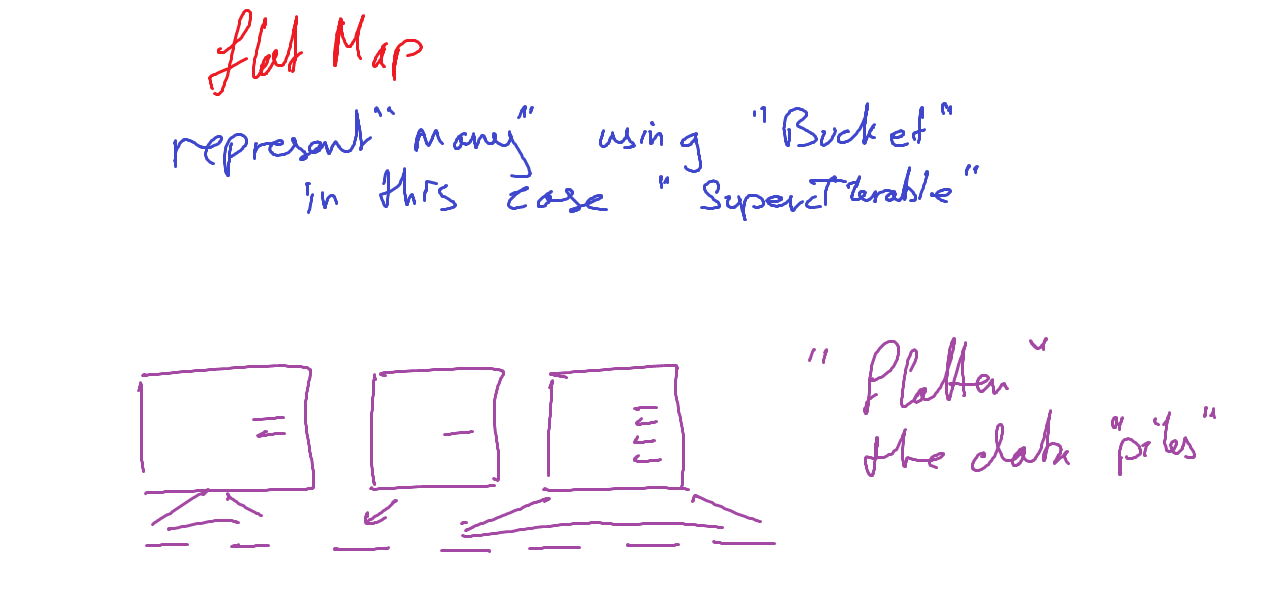 flat Map
represent "many" using "Bucket"
in this case "SuperIterable"
"Flatten"
the data "piles"